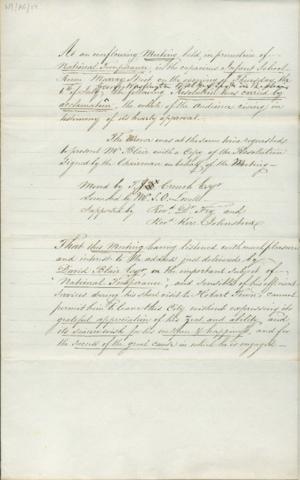 At an overflowing Meeting held in promotion of
National Temperance, in the capacious Infant School
Room Murray Street on the evening of Thursday the
of July, George Washington in the Chair
the following Resolution was carried by
acclamation, the whole of the audience rising in
testimony of its hearty approval.
The Mover was at the same time requested
to present Mr. Blair with a Copy of the Resolution
Signed by the Chairman on behalf of the Meeting—
Moved by Crouch Esqr
Seconded by Mr. S. O. Lovell
Supported by Revd. Dr. Fry and
Revd. Kerr Johnstone
That this Meeting having listened with much pleasure
and interest to the address just delivered by
David Blair Esqr, on the important subject of
"National Temperance", and sensible of his efficient
Services during his short visit to Hobart Town, cannot
permit him to leave this City without expressing its
grateful appreciation of his Zeal and ability, and
its sincere wish for his welfare & happiness, and for
the success of the great cause in which he is engaged—